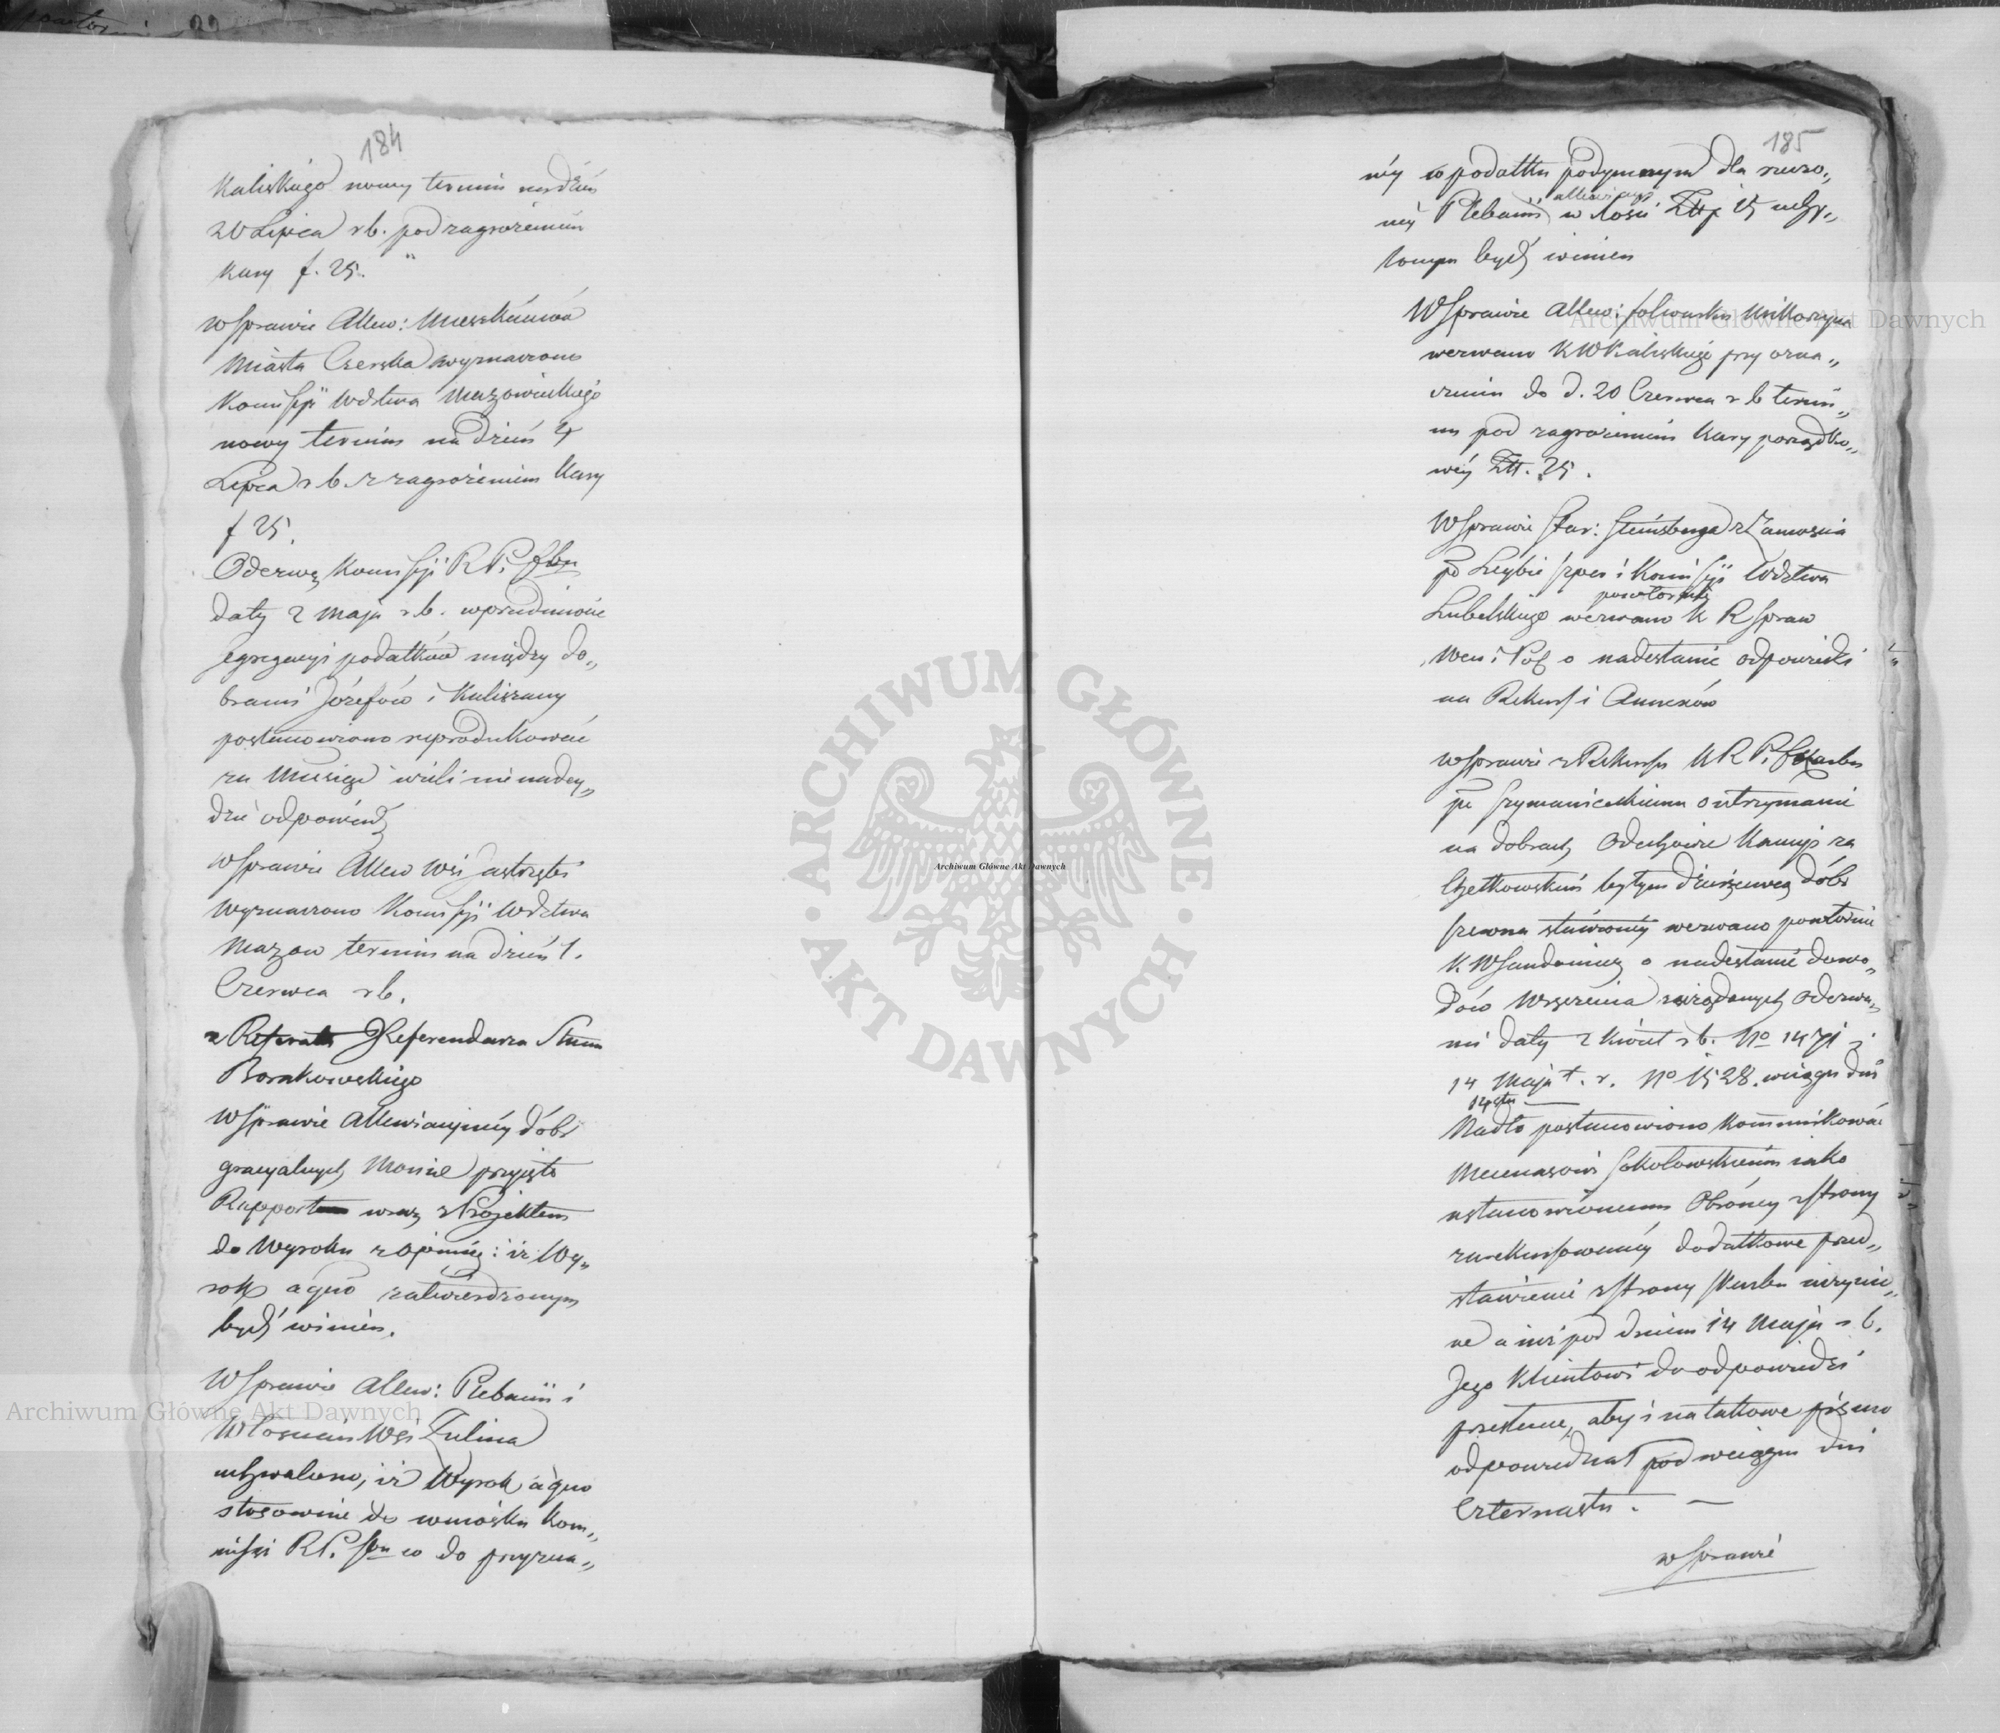 184
Kaliskiego nowy termin na dzień
20 Lipca r b. pod zagrożeniem
kary f. 25.
W Sprawie Allew: Mieszkańców
Miasta Czerska wyznaczono
Kommissyi Wdztwa Mazowieckiego
nowy termin na dzień 4
Lipca r b. z zagrożeniem kary
f 25.
Odezwę Kommissyi R. P.
daty 2 Maja r b. w przedmiocie
segregacyi podatków między do„
brami Józefów i Kaliszany
postanowiono reprodukować
za Miesiąc jeżeli nie nadey„
dzie odpowiedź
W Sprawie Allew Wsi Jastrzębi
Wyznaczono Kommissyi Wdztwa
Mazow termin na dzień 1.
Czerwca r b.
z Referatu Referendarza Stanu
Borakowskiego
W Sprawie Allewiacyjnéy dóbr
gracyalnych przyjęto
Rapport wraz z Projektem
do Wyroku z opinią: iż Wy„
rok a quo zatwierdzonym
bydź winien.
W Sprawie Allew: Plebanii i
Włościan Wsi Zulina
uchwalono, iż Wyrok a quo
stosownie do wniosku Kom„
missyi R. P. Sbu co do przyzna„
185
néy w podatku podymnym dla rzeczo„
néy Plebanii allewiacyi w ilości Złp 15 uchy„
lonym bydź winien
W Sprawie Allew: folwarku Mikorzyna
wezwano K W Kaliskiego przy ozna„
czeniu do d. 20 Czerwca r b termi„
nu pod zagrożeniem kary porządko„
wéy Złt. 25.
W Sprawie Star: Steinsberga z Zamościa
po Leybie i Kommissyi Wdztwa
Lubelskiego wezwano powtórnie K R Spraw
Wew i Pol o nadesłanie odpowiedzi
na Rekurs i Annexów
W Sprawie z Rekursu K R P. Skarbu
po Szymanieckiemu o utrzymanie
na dobrach Odechowie Kaucyi za
Chętkowskim byłym dzierżawcą dóbr
Szewna stawionéy wezwano powtórnie
K. W Sandomier o nadesłanie dowo„
dów Wręczenia zażądanych odezwa„
mi daty 2 Kwiet r b. No 1471 i
14 Maja t. r. No 1528. w ciągu dni
14stu
Nadto postanowiono kommunikować
Mecenasowi Sokołowskiemu jako
ustanowionemu Obrońcy z strony
zarekursowanéy dodatkowe przed„
stawienie z strony Skarbu uczynio„
ne a iuż pod dniem 14 Maja r b.
Jego Klientowi do odpowiedzi
przesłane, aby i na takowe pismo
odpowiedział pod w ciągu dni
Czternastu. —
w Sprawie